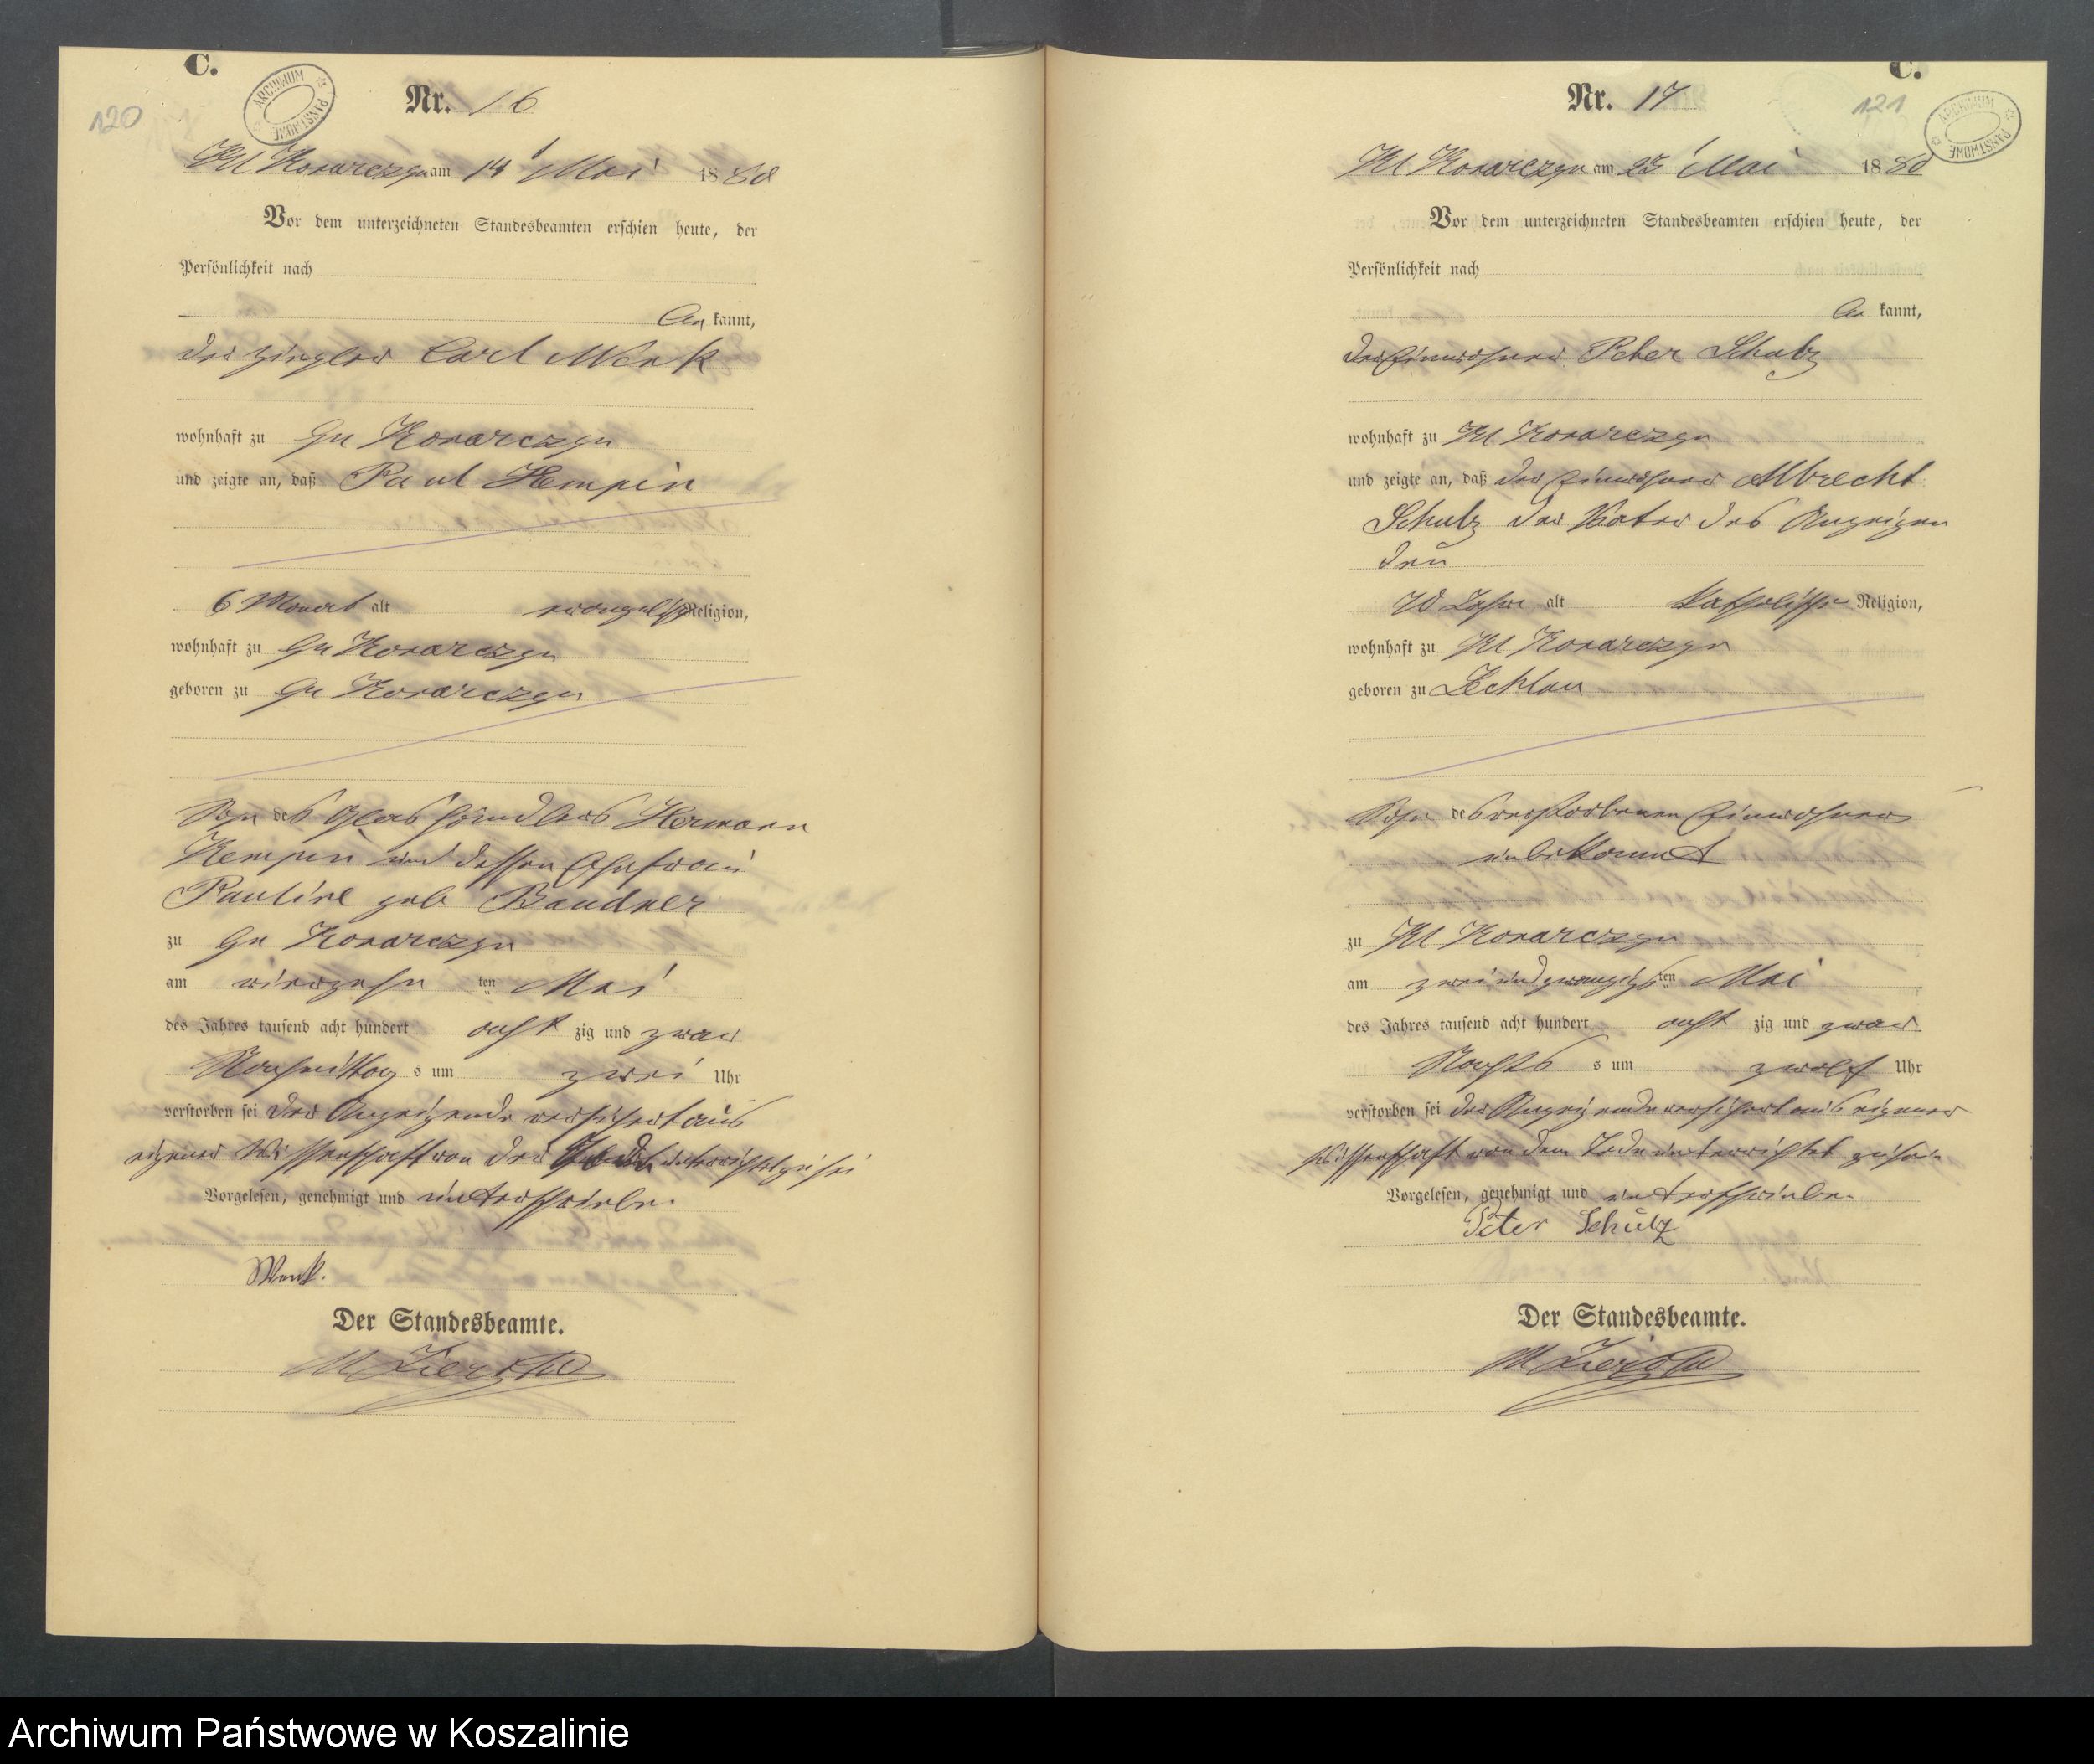 C.
120
ARCHIWUM PAŃSTWOWE
Nr. 16
Kl Konarczyn am 14 Mai 1880
Vor dem unterzeichneten Standesbeamten erschien heute, der
Persönlichkeit nach
be kannt,
der Ziegler Carl Wenk
wohnhaft zu Gr Konarczyn
und zeigte an, daß Paul Hempin
6 Monat alt evangelische Religion,
wohnhaft zu Gr Konarczyn
geboren zu Gr Konarczyn
Sohn des Glashändlers Hermann
Hempin und dessen Ehefrau
Pauline geb Bandner
zu Gr Konarczyn
am vierzehn ten Mai
des Jahres tausend acht hundert acht zig und zwar
Nachmittag s um zwei Uhr
verstorben sei der Anzeigende versichert aus
eigener Wissenschaft von dem Tode unterrichtet zu sein
Vorgelesen, genehmigt und unterschrieben.
Wenk.
Der Standesbeamte.
C.
121
ARCHIWUM PAŃSTWOWE
Nr. 17
Kl Konarczyn am 23 Mai 1880
Vor dem unterzeichneten Standesbeamten erschien heute, der
Persönlichkeit nach
be kannt,
der Einwohner Peter Schulz
wohnhaft zu Kl Konarczyn
und zeigte an, daß der Einwohner Albrecht
Schulz der Vater des Anzeigen
den
70 Jahre alt katholischer Religion,
wohnhaft zu Kl Konarczyn
geboren zu Zechlau
Sohn des verstorbenen Einwohner
unbekannt
zu Kl Konarczyn
am zweiundzwanzigs ten Mai
des Jahres tausend acht hundert acht zig und zwar
Nachts s um zwölf Uhr
verstorben sei der Anzeigende versichert aus eigener
Wissenschaft von dem Tode unterrichtet zu sein
Vorgelesen, genehmigt und unterschrieben.
Peter Schulz
Der Standesbeamte.
Archiwum Państwowe w Koszalinie